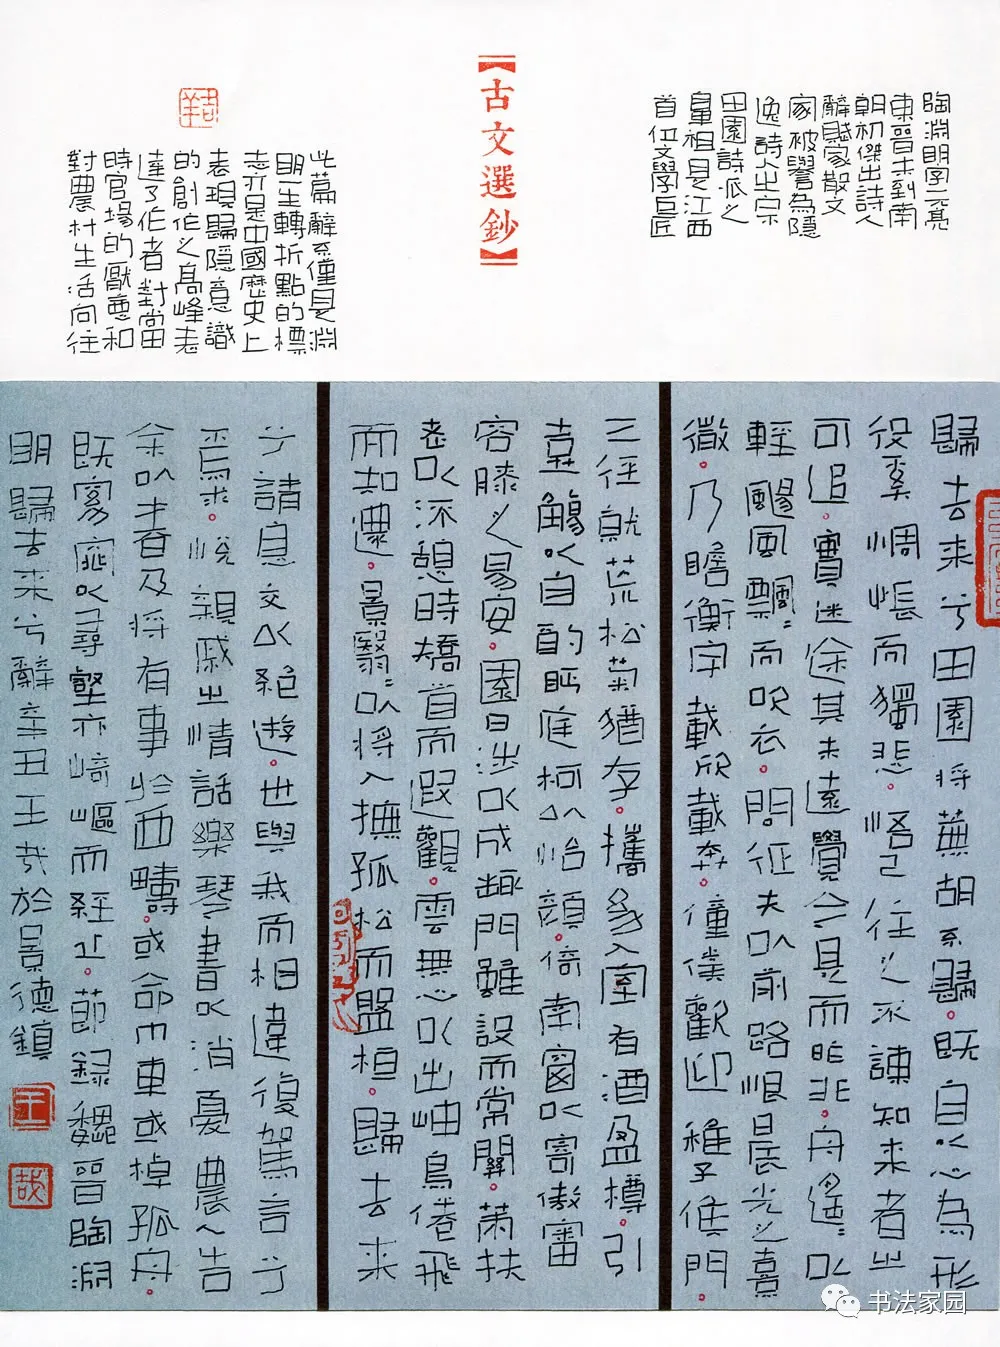 陶淵明字亮
東晉末到南
朝初傑出詩人
辭賦家散文
家被譽為隱
逸詩人之宗
田園詩派之
鼻祖是江西
首位文學巨匠
【古文選鈔】
此篇辭系僅是淵
明一生轉折點的標
志亦是中國歷史上
表現歸隱意識
的創作之高峰表
達了作者對當
時官場的厭惡和
對農村生活向往
歸去来兮田園将蕪胡不歸。既自以心為形
役奚惆悵而獨悲。悟已往之不諫知来者之
可追。實迷途其未遠覺今是而昨非。舟遙遙以
輕颺風飄飄而吹衣。問征夫以前路恨晨光之熹
微。乃瞻衡宇載欣載奔。僮僕歡迎稚子候門。
三徑就荒松菊猶存。攜幼入室有酒盈樽。引
壺觴以自酌眄庭柯以怡顏。倚南窗以寄傲審
容膝之易安。園日涉以成趣門雖設而常關。策扶
老以流憩時矯首而遐觀。雲無心以出岫鳥倦飛
而知還。景翳翳以将入撫孤松而盤桓。歸去来
兮請息交以絕遊。世與我而相違復駕言兮
焉求。悅親戚之情話樂琴書以消憂農人告
余以春及将有事於西疇。或命巾車或棹孤舟。
既窈窕以尋壑亦崎嶇而經丘。節録魏晉陶淵
明歸去来兮辭辛丑王哉於景德鎮
王
哉
书法家园